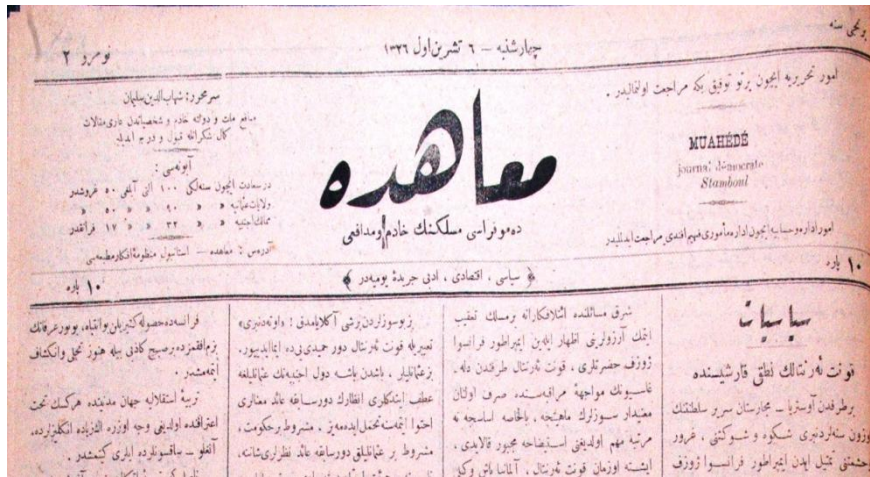 برنجی سنه
چهارشنبه — ٦ تشرین اول ١٣٢٦
نومرو ٢
امور تحریریه ایچون پرتو توفیق بكه مراجعت اولنمالیدر .
MUAHÉDÉ
journal démocrate
Stamboul
امور اداره و حسابیه ایچون اداره مأموری فهیم افندی یه مراجعت ایدلملیدر
معاهده
ده‌موقراسی مسلكنك خادم و مدافعی
سر محرر : شهاب‌الدین سلیمان
منافع ملت و دولته خادم و شخصیاتدن عاری مقالات
كمال شكرانله قبول و درج ایدیلیر
آبونه‌سی :
درسعادت ایچون سنه‌لكی ١٠٠ آلتی آیلغی ٥٠ غروشدر
ولایات عثمانیه » » ٩٠ » » ٥٠ »
ممالك اجنبیه » » ٣٢ » » ١٧ فرانقدر
آدرس : معاهده — استانبول منظومهٔ افكار مطبعه‌سی
١٠ پاره
﴿ سیاسی ، اقتصادی ، ادبی جریدهٔ یومیه‌در ﴾
١٠ پاره
سیاسیات
قونت ئه‌رنتالك نطقی قارشیسنده
بر طرفدن آوستریا — مجارستان سریر سلطنتك
اوزون سنه‌لردنبری شكوه و شوكتنی ، غرور
وحشمتنی تمثیل ایدن ایمپراطور فرانسوا ژوزف
شرق مسائلنده ائتلافكارانه بر مسلك تعقیب
ایتمك آرزولرینی اظهار ایله‌ین ایمپراطور فرانسوا
ژوزف حضرتلری ، قونت ئه‌رنتال طرفندن دله .
غاسیونك مواجههٔ مراقبه‌سنده صرف اولنان
معنیدار سوزلرك ماهیتجه ، بالخاصه اساسجه نه
مرتبه مهم اولدیغنی استیضاحه مجبور قالایدی ،
ایشته اوزمان قونت ئه‌رنتال ، آلمانیا باش وكلی
بز بو سوزلردن برشی آكلایامدق : « اوته‌دنبری »
تعبیریله قونت ئه‌رنتال دور حمیدی‌یی‌ده ایما ایدییور.
بز عثمانلیلر ، باشدن باشه دول اجنبیه‌نك عثمانلیلغه
عطف ایتدكلری انظارك دور سابقه عائد معنالری
احتوا ایتمسنه تحمل ایده‌مه‌یز . مشروط بر حكومت ،
مشروط بر عثمانلیلق دور سابقه عائد نظرلری شاننه،
فرانسه‌ده حصوله كتیریلن بو انتباه، بو نور عرفانك
بزم افقمزده بر صبیح كاذبی بیله هنوز تجلی و انكشاف
ایتمه‌مشدر .
تربیهٔ استقلالیه جهان مدنیتده هركسك تحت
اعترافنده اولدیغی وجه اوزره اك زیاده انگلیزلرده،
آنغلو — ساقسونلرده ایلری كیتمشدر .